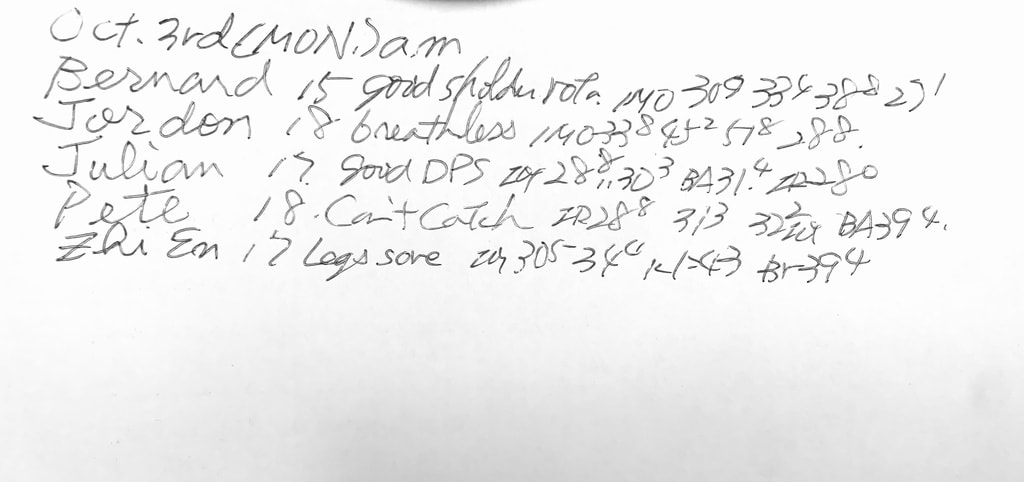 Oct. 3rd (MON.) am
Bernard 15 good sholder rota. IMO 309 334 388
Jordon 18 breathless IMO 338 452 578 288.
Julian 17. good DPS 288 303 BA 31.4 280
Pete 18. Can't Catch IR 288 313 322 BA 394.
Zhi En 17 Legs sore 305 344 Br 394